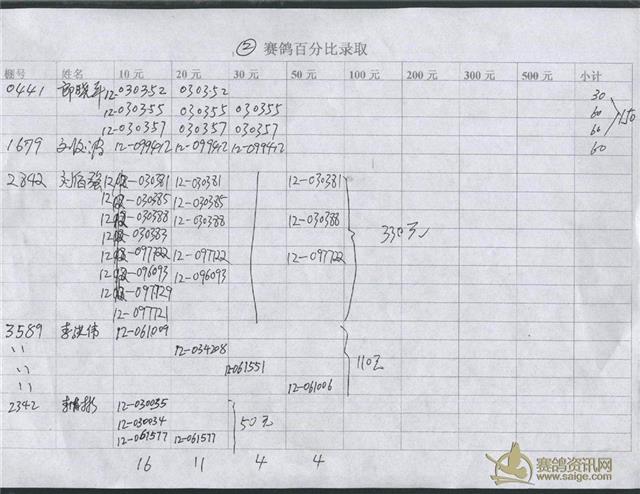 ② 赛鸽百分比录取
棚号 姓名 10元 20元 30元 50元 100元 200元 300元 500元 小计
0441 12-030352 030352 30
12-030355 030355 030355 60 150
12-030357 030357 030357 60
1679 12-099412 12-099412 12-099412 60
2842 刘佰强 12-030381 12-030381 12-030381
12-030385 12-030385
12-030388 12-030388 12-030388 330元
12-030383
12-097722 12-097722 12-097722
12-096093 12-096093
12-097729
12-097721
3589 李洪伟 12-061009
〃 12-034208
〃 12-061551 110元
〃 12-061006
2342 12-030035
12-030034 50元
12-061577 12-061577
16 11 4 4
赛鸽资讯网
www.saige.com